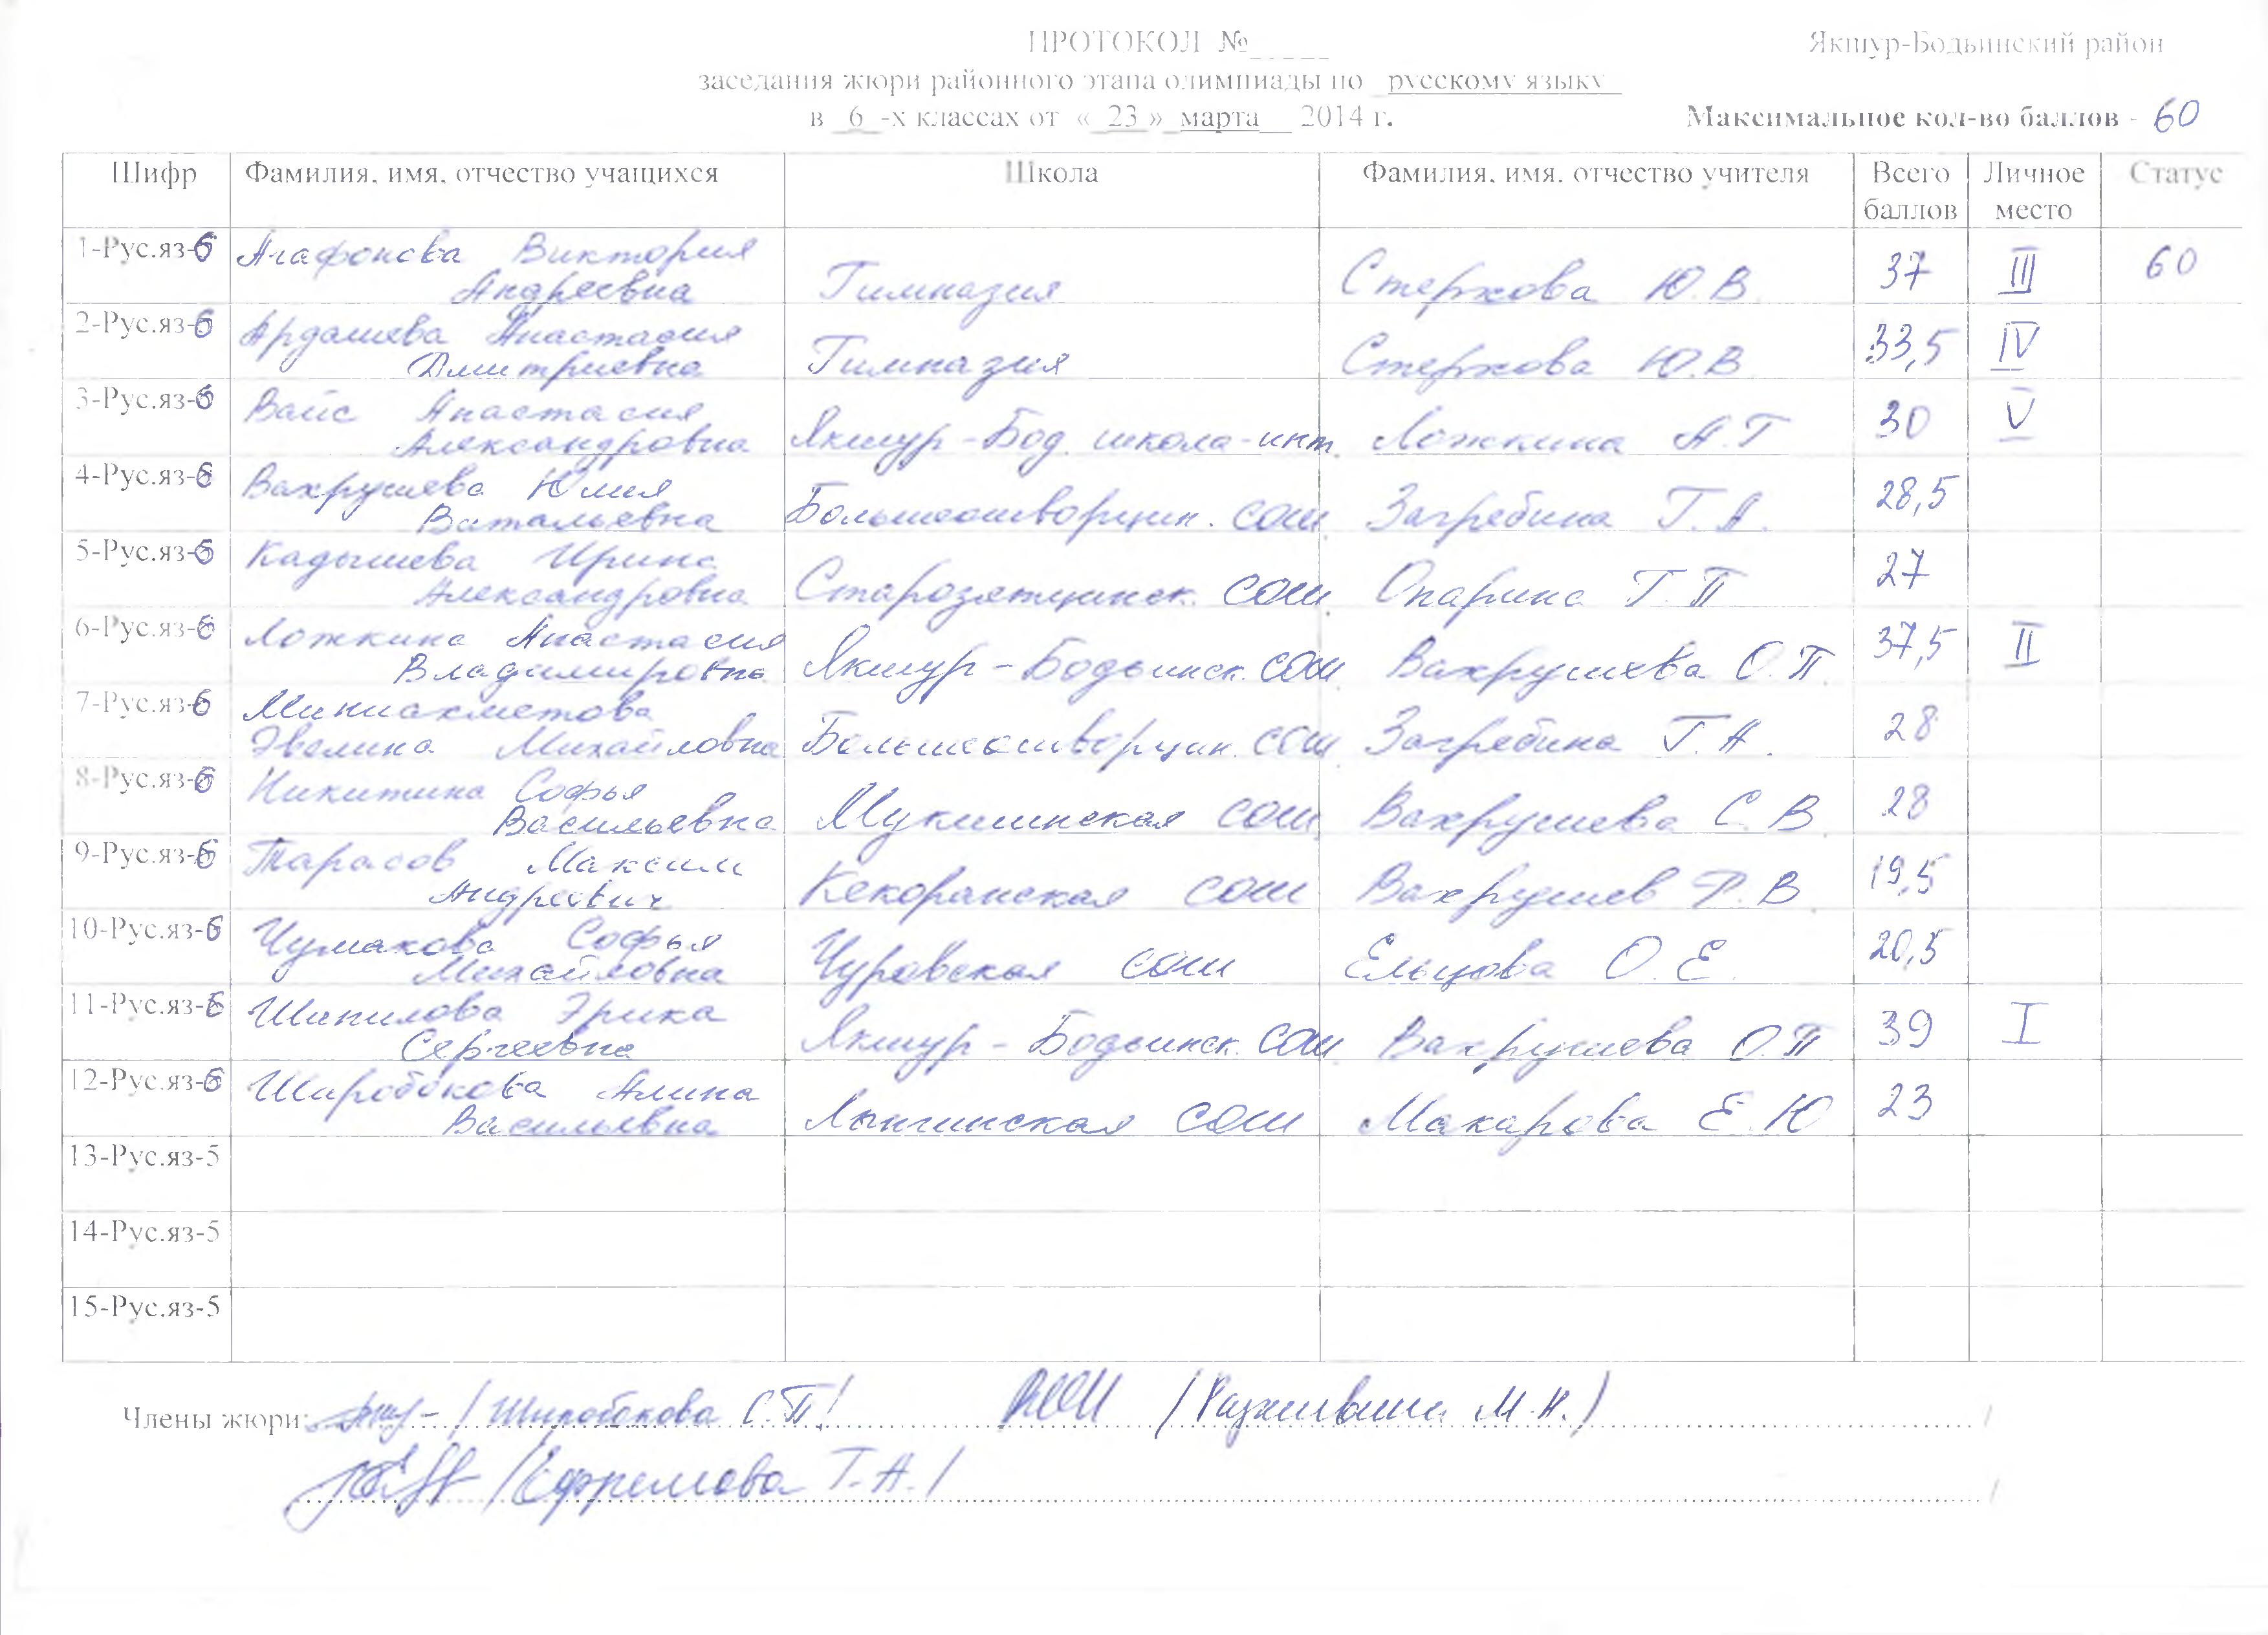 ПРОТОКОЛ №____ Якшур-Бодьинский район
заседания жюри районного этапа олимпиады по русскому языку
в 6 -х классах от « 23 » марта 2014 г. Максимальное кол-во баллов - 60
Шифр Фамилия, имя, отчество учащихся Школа Фамилия, имя, отчество учителя Всего баллов Личное место Статус
1-Рус.яз-6 Агафонова Виктория
Андреевна Гимназия Стерхова Ю.В. 37 III 60
2-Рус.яз-6 Ардашева Анастасия
Дмитриевна Гимназия Стерхова Ю.В 33,5 IV
3-Рус.яз-6 Вайс Анастасия
Александровна Якшур-Бод. школа-инт. Ложкина А.Г 30 V
4-Рус.яз-6 Вахрушева Юлия
Витальевна Большеошворцин. СОШ. Загребина Т.А. 28,5
5-Рус.яз-6 Кадышева Ирина
Александровна Старозятцинск. СОШ. Опарина Г.П 27
6-Рус.яз-6 Ложкина Анастасия
Владимировна Якшур-Бодьинск. СОШ. Вахрушева О.П. 37,5 II
7-Рус.яз-6 Миниахметова
Эвелина Михайловна Большеошворцин. СОШ. Загребина Т.А. 28
8-Рус.яз-6 Никитина Софья
Васильевна Мукшинская СОШ. Вахрушева С.В. 28
9-Рус.яз-6 Тарасов Максим
Андреевич Кекоранская СОШ Вахрушев Р.В. 19,5
10-Рус.яз-6 Чумакова Софья
Михайловна Чуровская СОШ Ельцова О.Е. 20,5
11-Рус.яз-6 Шипилова Эрика
Сергеевна Якшур-Бодьинск. СОШ. Вахрушева О.П 39 I
12-Рус.яз-6 Широбокова Алина
Васильевна Лынгинская СОШ Макарова Е.Ю 23
13-Рус.яз-5
14-Рус.яз-5
15-Рус.яз-5
Члены жюри: /Широбокова С.П/ М.Н./
/Ефремова Т.А./